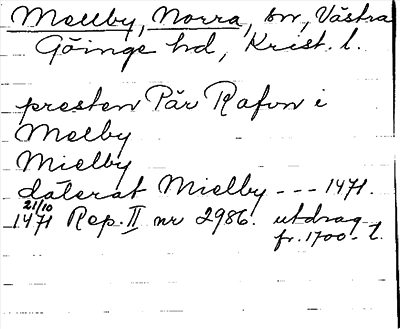 Mellby, Norra, sn, Västra
Göinge hd, Krist. l.
presten Pär Rafvn i
Melby
Mielby
daterat Mielby --- 1471.
21/10
1471 Rep. II nr 2986. utdrag
fr. 1700-t.